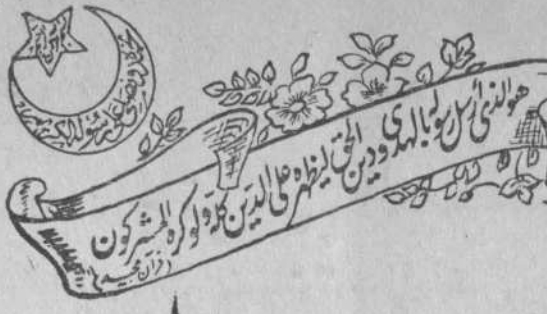 هو الذی ارسل رسوله بالهدی ودین الحق لیظهره علی الدین کله ولو کره المشرکون
(قرآن مجید)